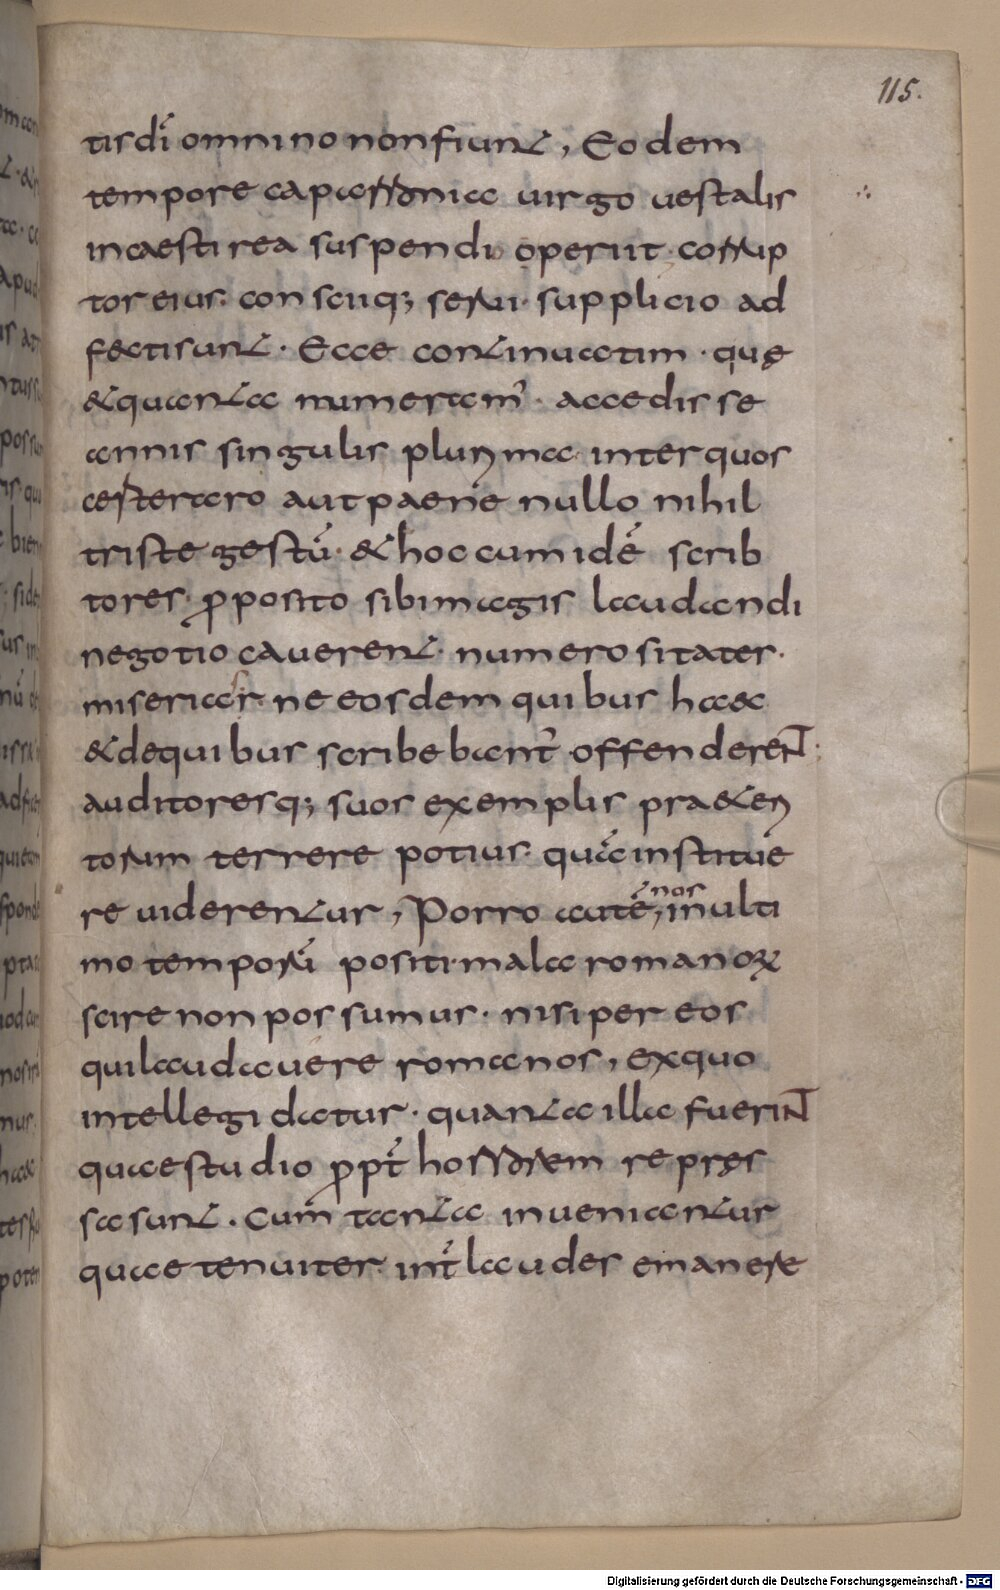 115.
tis dī omnino non fiunt, Eodem
tempore caparronica uirgo uestalis
incaesti rea suspendio periit. corrup
tor eius. consciiq; serui. supplicio ad
fecti sunt. Ecce continuatim. quę
& quanta numeram̃. accedisse
annis singulis plurima. inter quos
aester raro aut paene nullo nihil
triste gestū. & hoc cum idē scrib
tores. p̱posito sibi magis laudandi
negotio cauerent. numerositates.
miserias. ne eosdem quibus haec
& de quibus scribebant̃ offenderent.
auditoresq; suos exemplis praeteri
torum terrere potius. quā institue
re uiderentur, Porro autē, nos in ulti
mo temporū positi. mala romanoꝝ
scire non possumus. nisi per eos
qui laudauere romanos, ex quo
intellegi datur. quanta illa fuerint
quae studio p̱pt̄ horrorem repręs
sa sunt. Cum tanta inueniantur
quae tenuiter. int̄ laudes emanere
Digitalisierung gefördert durch die Deutsche Forschungsgemeinschaft - DFG